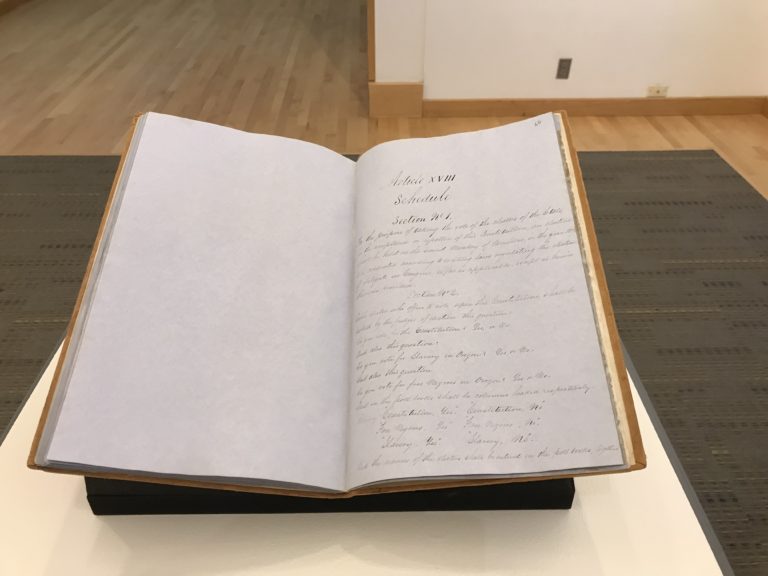 Article XVIII
Schedule
Section No 1.
For the purpose of taking the vote of the electors of the State
for the acceptance or rejection of this Constitution, an election
shall be held on the second Monday of November, in the year
conducted according to existing laws regulating the election
of Delegate in Congress, so far as applicable, except as herein
otherwise provided.
Section No 2.
Each elector who offers to vote upon this Constitution, shall be
asked by the judges of election this question:
Do you vote for the Constitution? Yes, or No.
And also this question:
Do you vote for Slavery in Oregon? Yes or No.
And also this question
Do you vote for free Negroes in Oregon? Yes or No.
And in the poll books shall be columns headed respectively.
"Constitution, Yes" "Constitution, No"
"Free Negroes, Yes" "Free Negroes, No"
"Slavery, Yes" "Slavery, No".
And the names of the electors shall be entered in the poll books, together